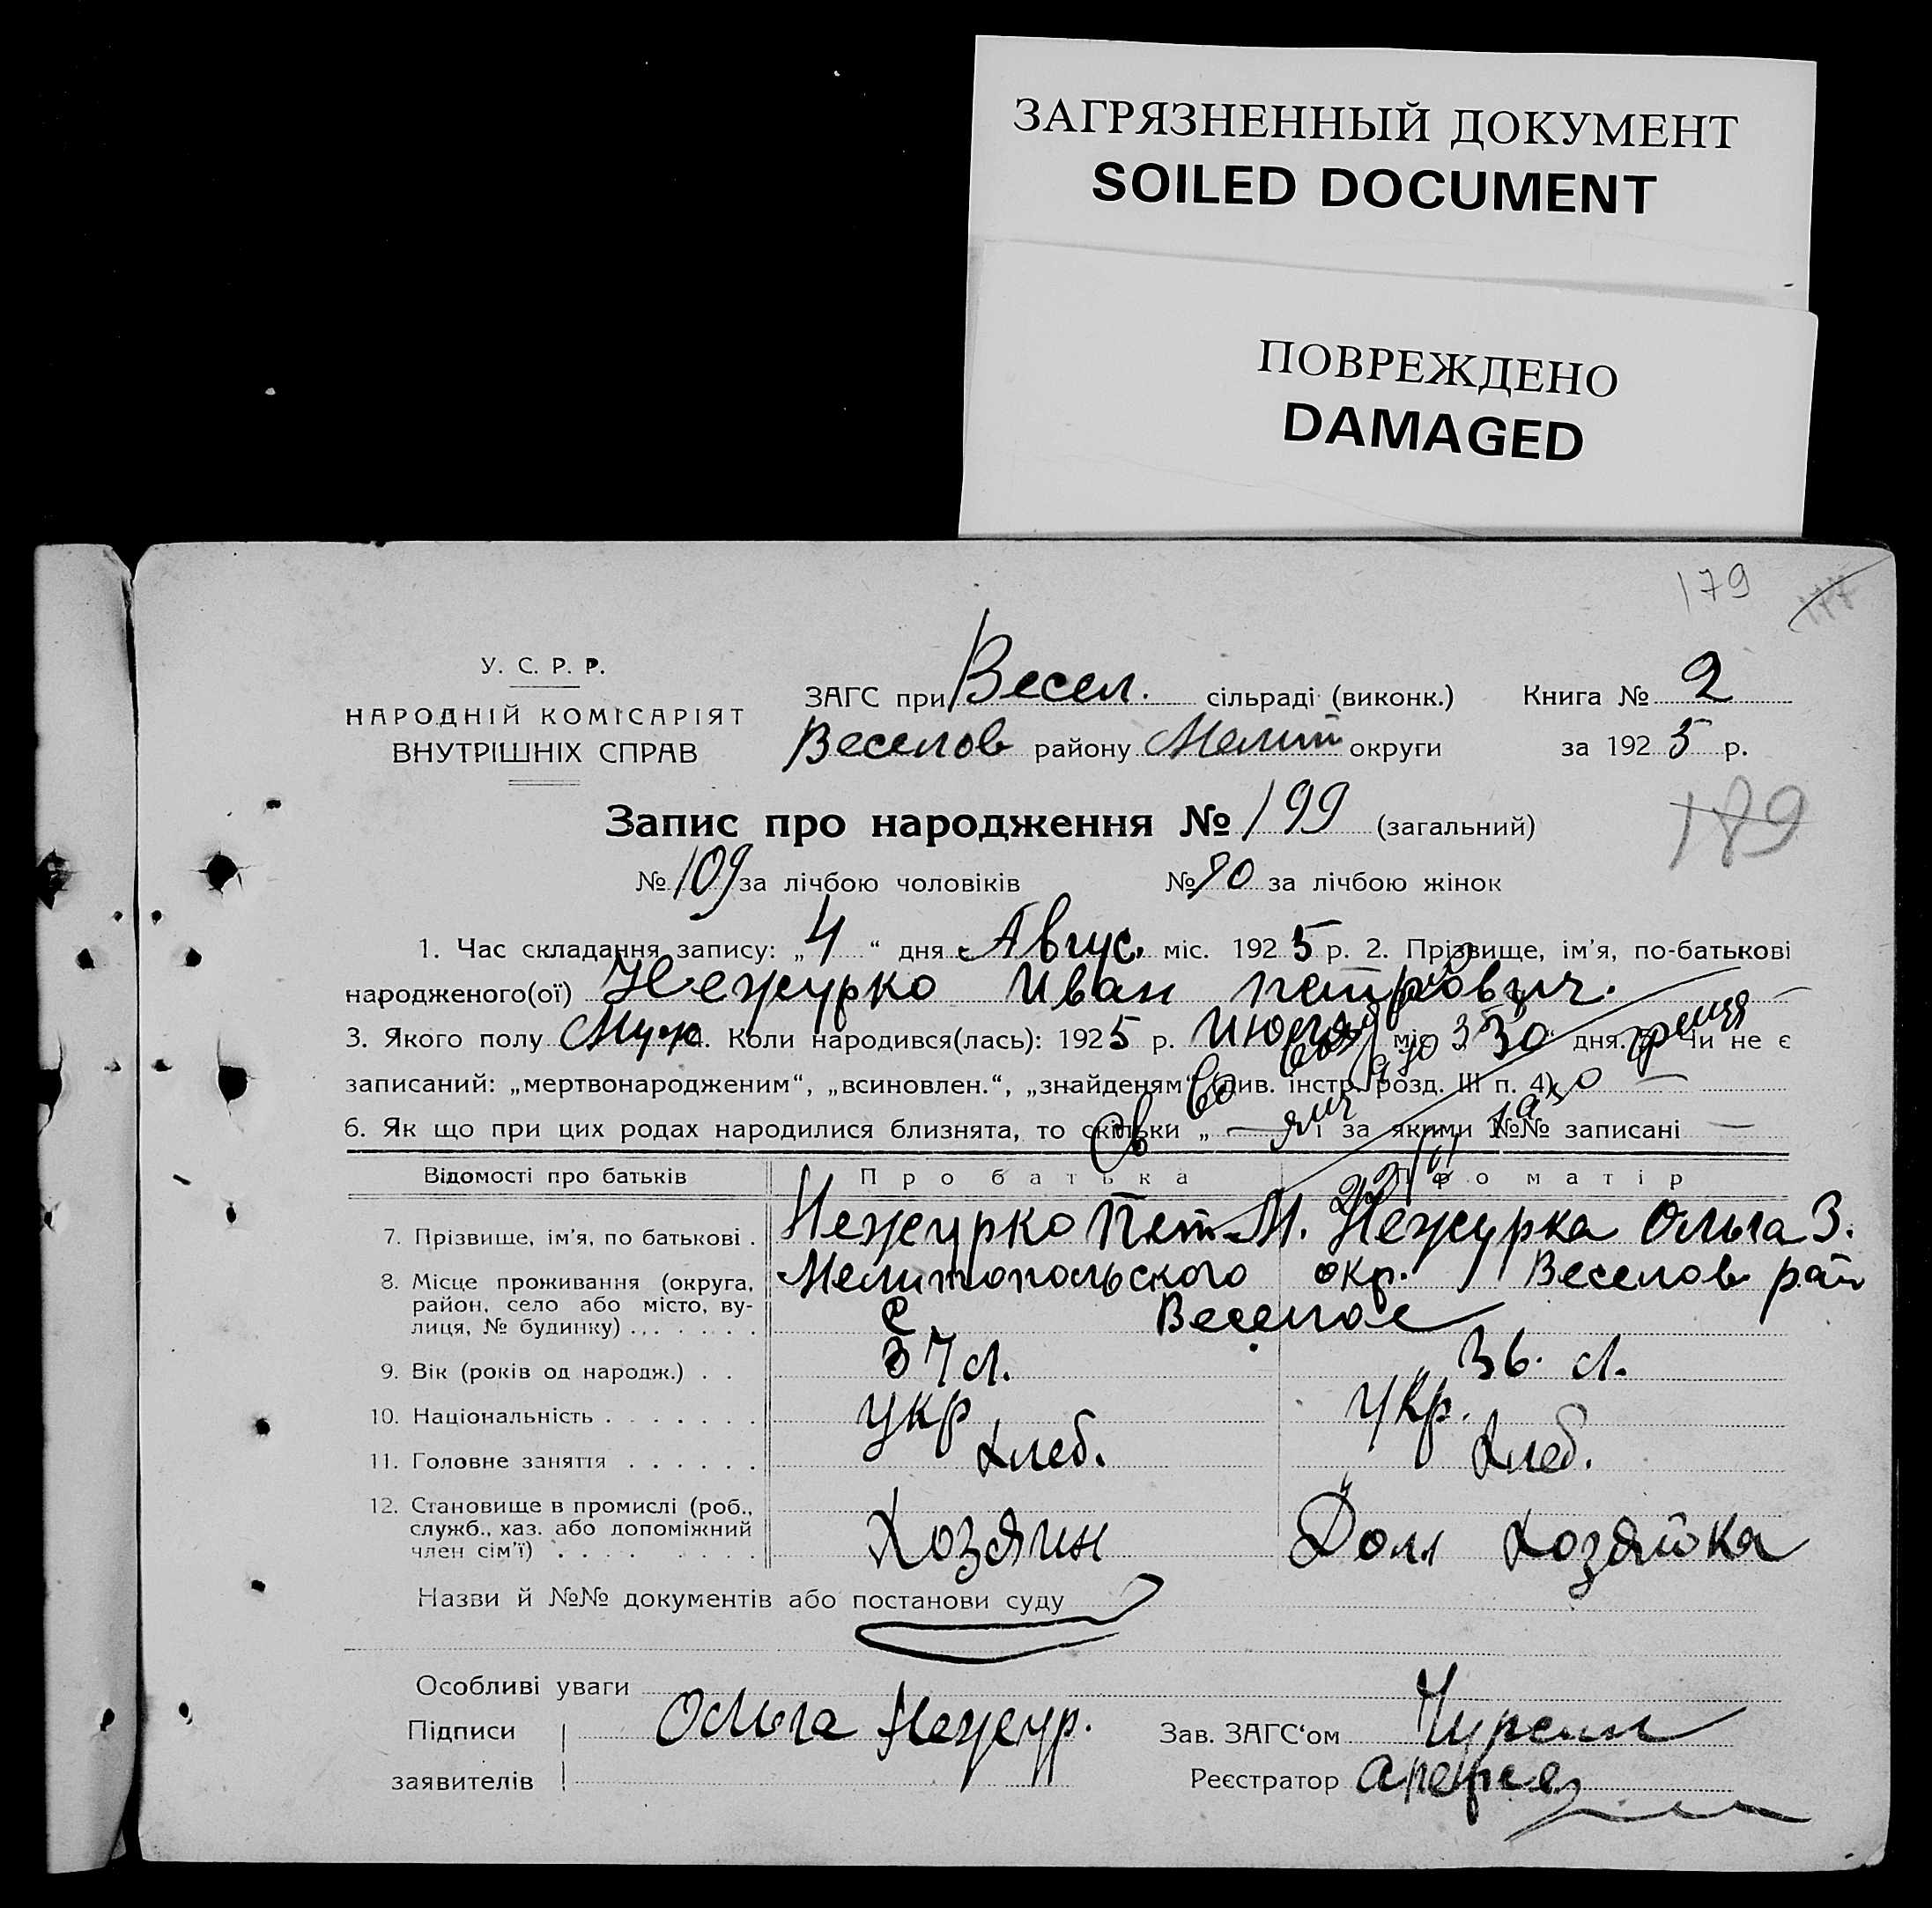 ЗАГРЯЗНЕННЫЙ ДОКУМЕНТ
SOILED DOCUMENT
ПОВРЕЖДЕНО
DAMAGED
179
У. С. Р. Р.
НАРОДНІЙ КОМІСАРІЯТ
ВНУТРІШНІХ СПРАВ
ЗАГС при Весел. сільраді (виконк.) Книга № 2
Веселов району Мелит округи за 1925 р.
Запис про народження № 199 (загальний)
189
№ 109 за лічбою чоловіків № 90 за лічбою жінок
1. Час складання запису: „4“ дня Авгус. міс. 1925 р. 2. Прізвище, ім'я, по-батькові
народженого(ої) Нежурко Иван Петрович.
3. Якого полу Муж. Коли народився(лась): 1925 р. Июля міс. 30 дня. 5. Чи не є
записаний: „мертвонародженим“, „всиновлен.“, „знайденям“ (див. інстр. розд. III п. 4)
6. Як що при цих родах народилися близнята, то скільки „ — і за якими №№ записані —
Відомості про батьків Про батька Про матір
7. Прізвище, ім'я, по батькові . Нежурко Пет М. Нежурка Ольга З.
8. Місце проживання (округа, район, село або місто, вулиця, № будинку) Мелитопольского окр. Веселов рай
с. Веселое
9. Вік (років од народж.) . . 37 л. 36. л.
10. Національність . . . . . . . укр укр.
11. Головне заняття . . . . . . хлеб. хлеб.
12. Становище в промислі (роб., служб., хаз. або допоміжний член сім'ї) Хозяин Дом хозяйка
Назви й №№ документів або постанови суду
Особливі уваги
Підписи Ольга Нежур. Зав. ЗАГС'ом Чурсин
заявителів Реєстратор